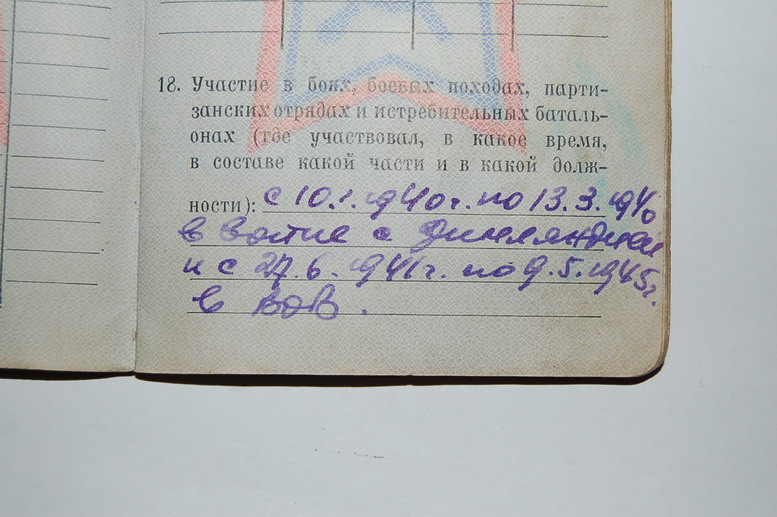 18. Участие в боях, боевых походах, парти-
занских отрядах и истребительных баталь-
онах (где участвовал, в какое время,
в составе какой части и в какой долж-
ности): с 10.1.1940 г. по 13.3.1940
в войне с Финляндией
и с 27.6.1941 г. по 9.5.1945 г.
в ВОВ.